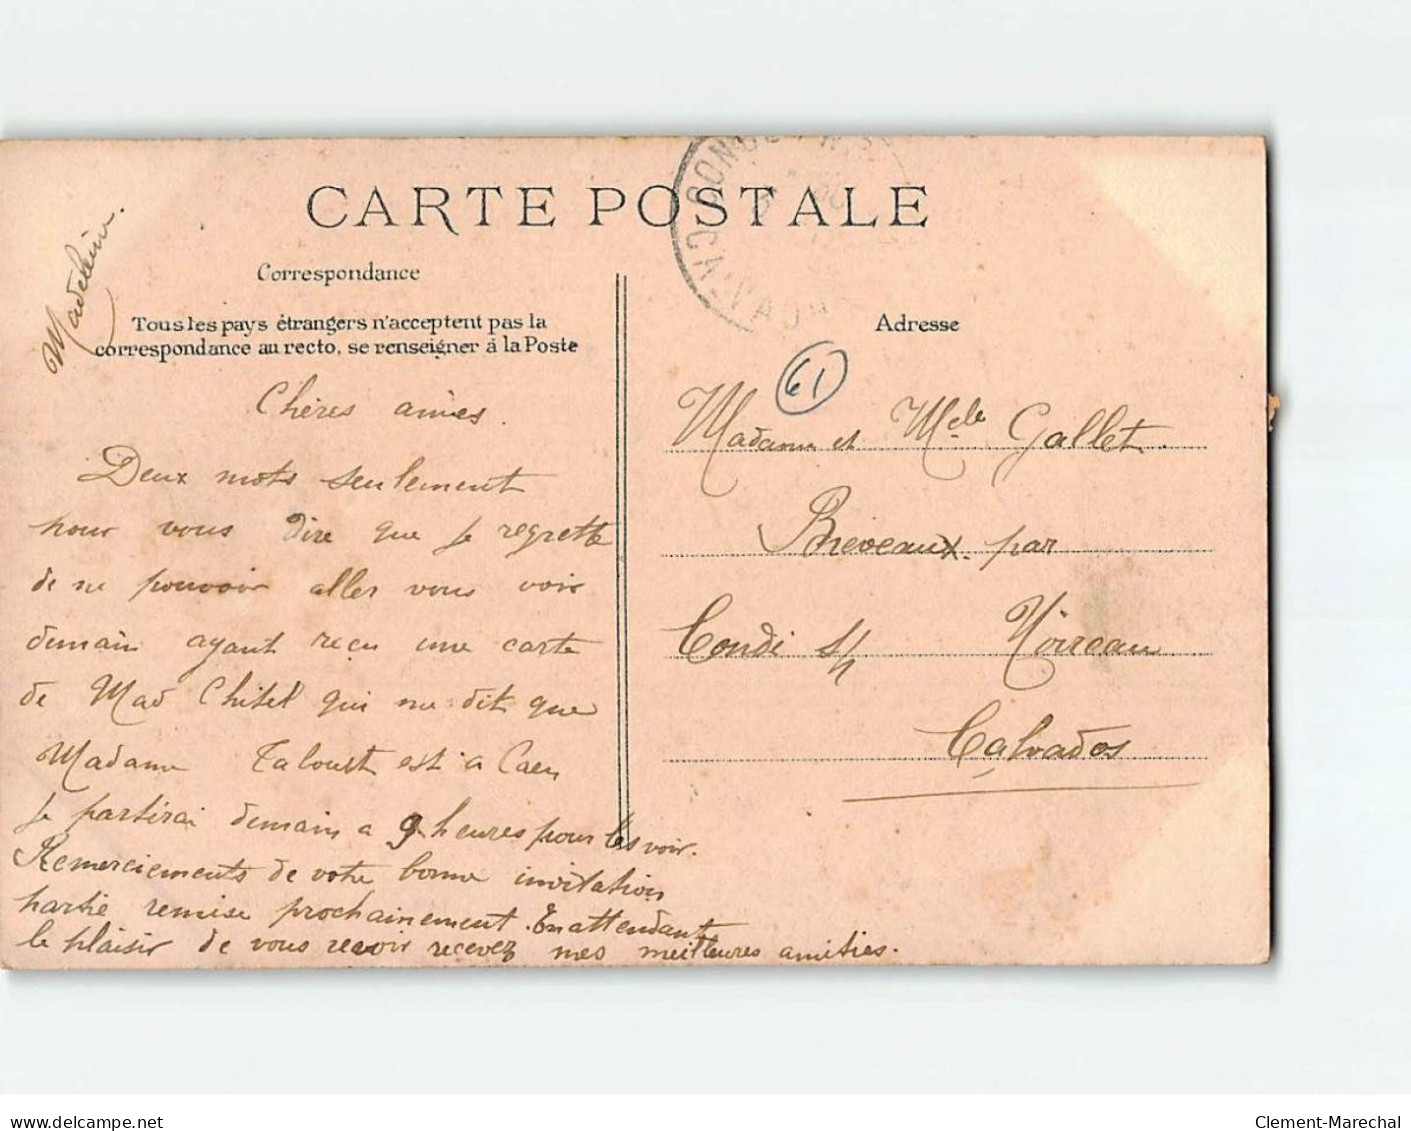 CARTE POSTALE
Correspondance
Tous les pays étrangers n'acceptent pas la
correspondance au recto, se renseigner à la Poste
Madeleine.
Chères amies.
Deux mots seulement
pour vous dire que je regrette
de ne pouvoir aller vous voir
demain ayant reçu une carte
de Mad Chitel qui me dit que
Madame Taloust est a Caen
je partirai demain a 9 heures pour les voir.
Remerciements de votre bonne invitation
partie remise prochainement. En attendant
le plaisir de vous revoir recevez mes meilleures amitiés.
Adresse
61
Madame et Melle Gallet.
Brieveaux par
Condé s/ Noireau
Calvados
delcampe.net
Clement-Marechal